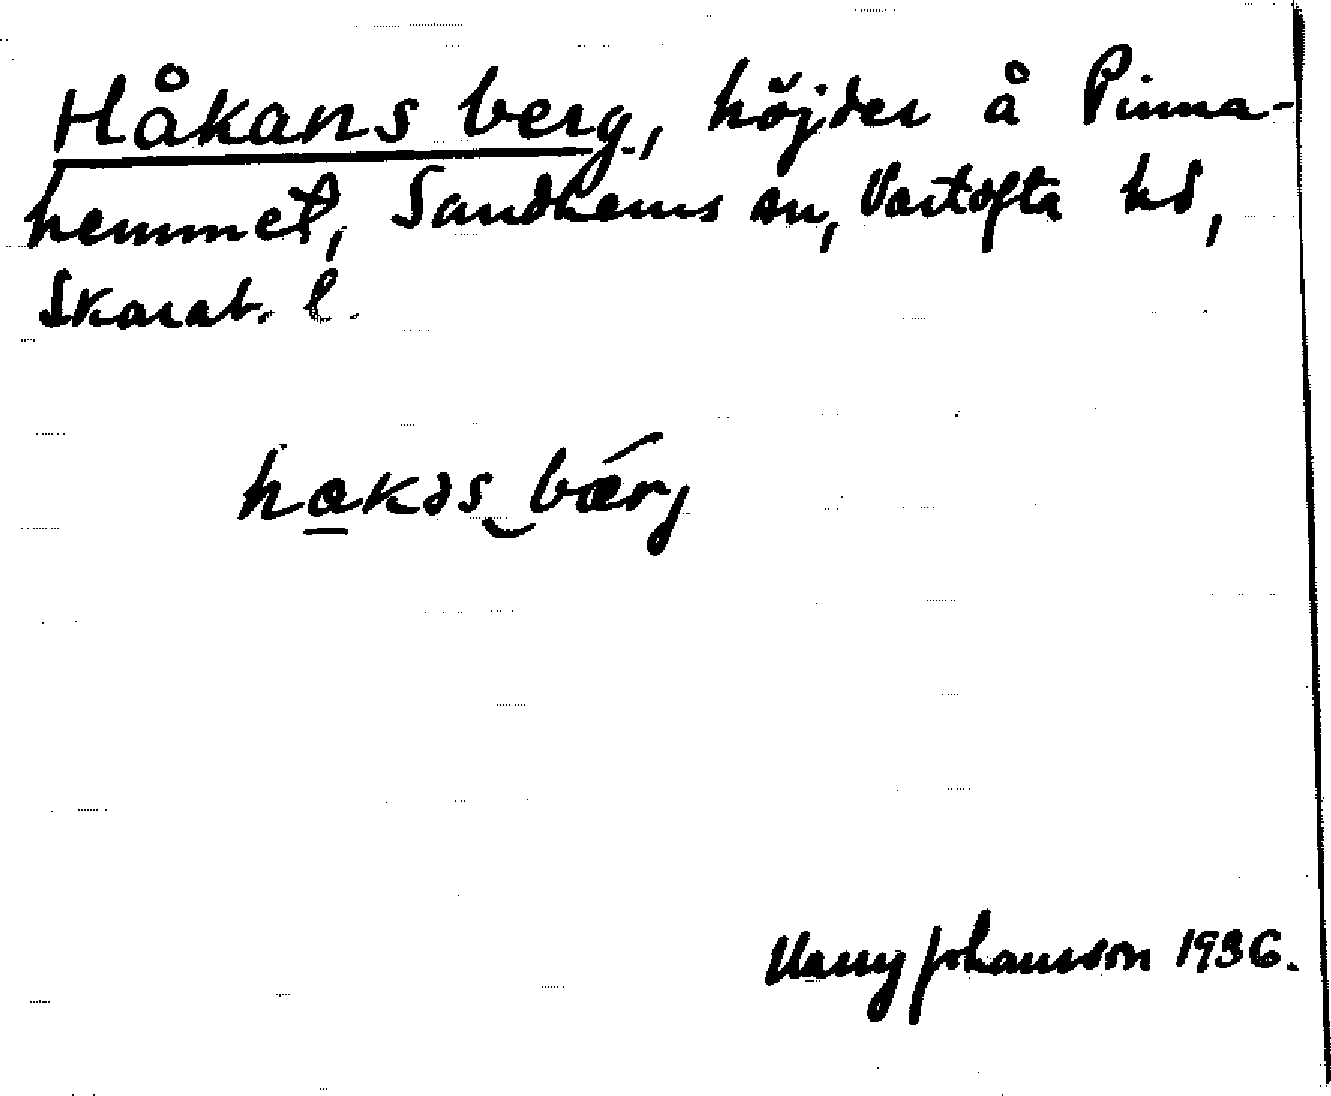 Håkans berg, höjder å Pinna-
hemmet, Sandhems sn, Vartofta hd,
Skarab. l.
hakəs bǽrj
Harry Johansson 1936.